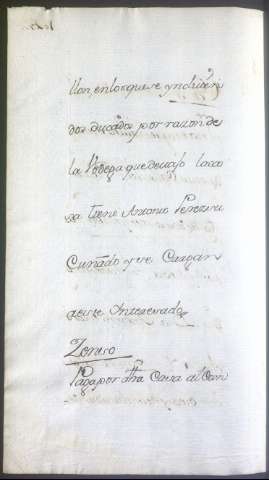 llon, en los que se yncluien
dos ducados por razon de
la Vodega que devajo
da tiene Antonio Perez su
Cuñado y se Cargan
a este Interesado
Zenso
Paga por dha Casa al